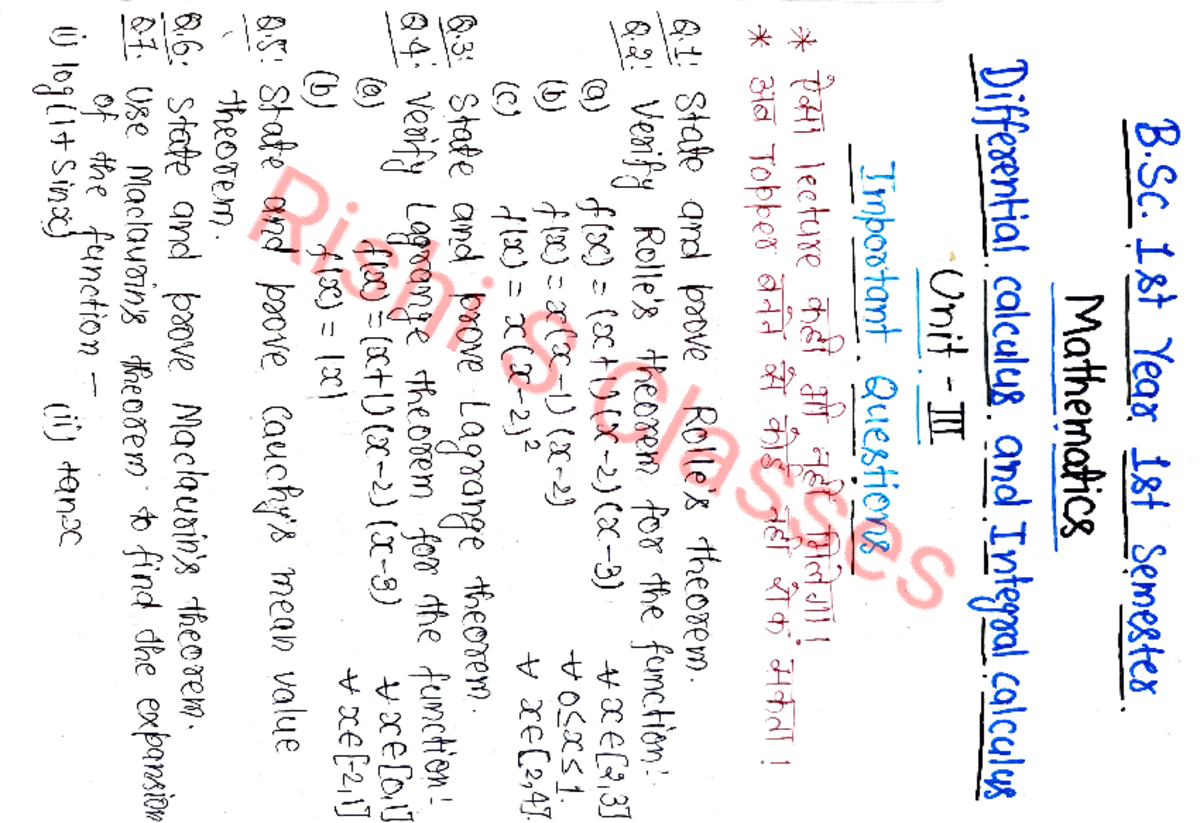 B.Sc. Ist Year Ist Semester
Mathematics
Differential calculus and Integral calculus
Unit - III
Important Questions
* ऐसा lecture कहीं भी नहीं मिलेगा!
* अब Topper बनने से कोई नहीं रोक सकता!
Q.1: State and prove Rolle's theorem.
Q.2: Verify Rolle's theorem for the function:
(a) f(x) = (x+1)(x-2)(x-3) ∀ x∈[2,3]
(b) f(x) = x(x-1)(x-2) ∀ 0≤x≤1.
(c) f(x) = x(x-2)² ∀ x∈[2,4].
Q.3: State and prove Lagrange theorem.
Q.4: Verify Lagrange theorem for the function:
(a) f(x) = (x+1)(x-2)(x-3) ∀ x∈[0,1]
(b) f(x) = |x| ∀ x∈[-2,1]
Q.5: State and prove Cauchy's mean value
theorem.
Q.6: State and prove Maclaurin's theorem.
Q.7: Use Maclaurins theorem to find the expansion
of the function -
(i) log(1+Sinx) (ii) tanx
Rishi S Classes